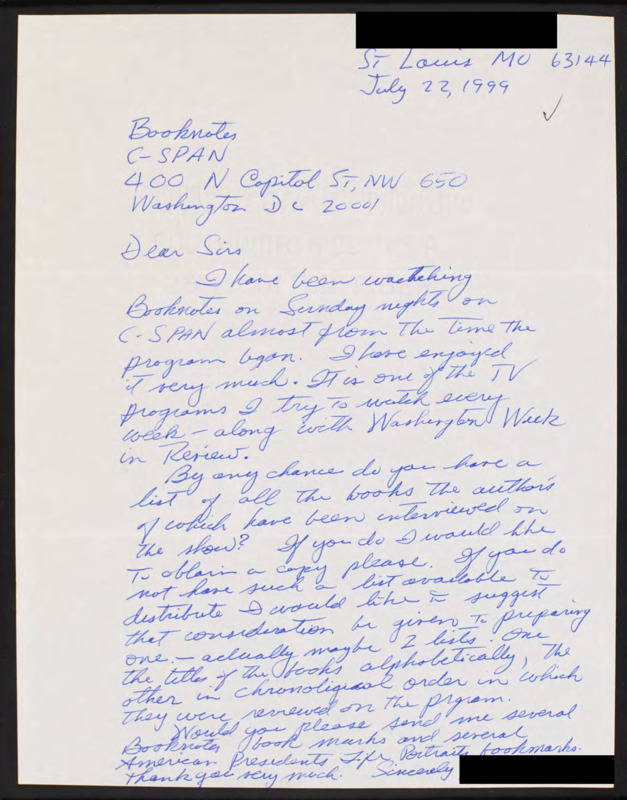 St Louis MO 63144
July 22, 1999
Booknotes
C-SPAN
400 N Capitol St, NW 650
Washington DC 20001
Dear Sirs
I have been watching
Booknotes on Sunday nights on
C-SPAN almost from the time the
program began. I have enjoyed
it very much. It is one of the TV
programs I try to watch every
week - along with Washington Week
in Review.
By any chance do you have a
list of all the books the authors
of which have been interviewed on
the show? If you do I would like
to obtain a copy please. If you do
not have such a list available to
distribute I would like to suggest
that consideration be given to preparing
one. - actually maybe 2 lists: One
the titles of the books alphabetically, the
other in chronoligical order in which
they were reviewed on the prgram.
Would you please send me several
Booknotes book marks and several
American Presidents Life Portraits bookmarks.
Thank you very much. Sincerely